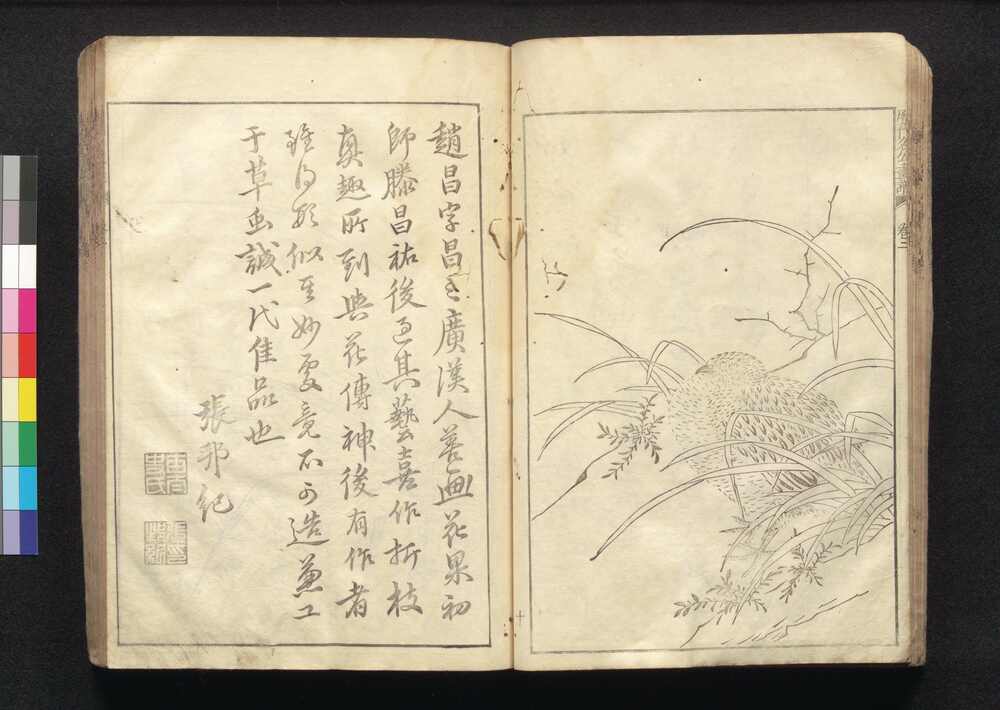 趙昌字昌之廣漢人善画花果初
師滕昌祐後過其藝喜作折枝
真趣所到與花傳神後有作者
雖得形似其妙處竟不可造兼工
于草虫誠一代佳品也
張邦紀
卷二